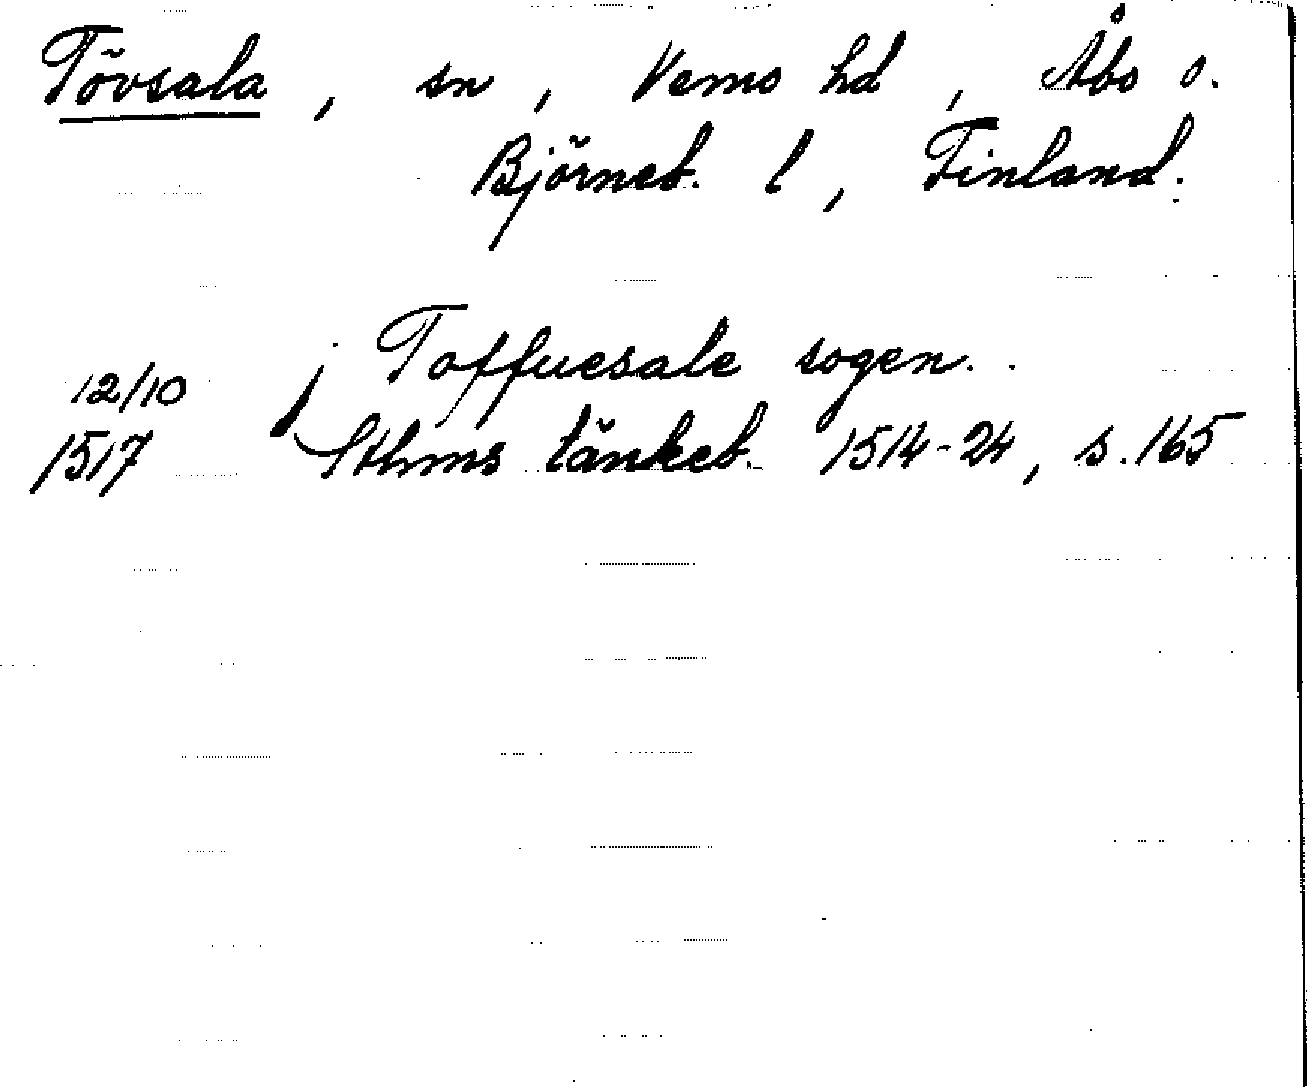 Tövsala, sn, Vemo hd, Åbo o.
Björneb. l, Finland.
i Toffuesale sogen.
12/10
1517 Sthms tänkeb. 1514-24, s. 165